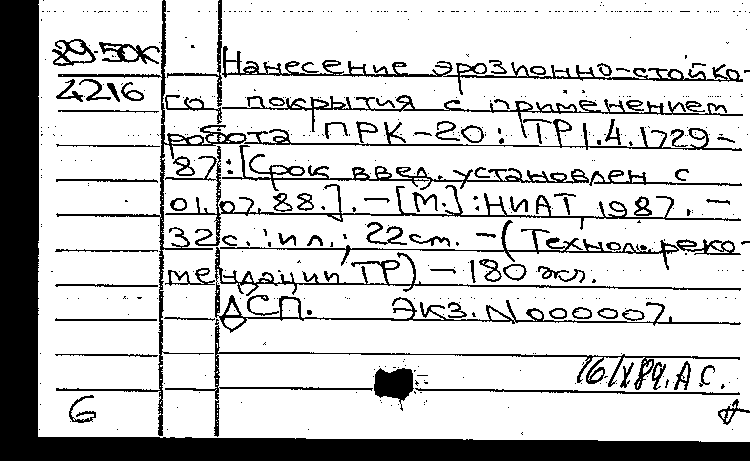 89-50К Нанесение эрозионно-стойко-
4216 го покрытия с применением
робота ПРК-20: ТР1.4.1729-
87: [Срок введ. установлен с
01.07.88.]. - [М.] : НИАТ, 1987. -
32с. : ил.; 22см. - (Технол. реко-
мендации ТР) - 180 экз.
ДСП. Экз. N 000007.
16/IX89. А С.
6